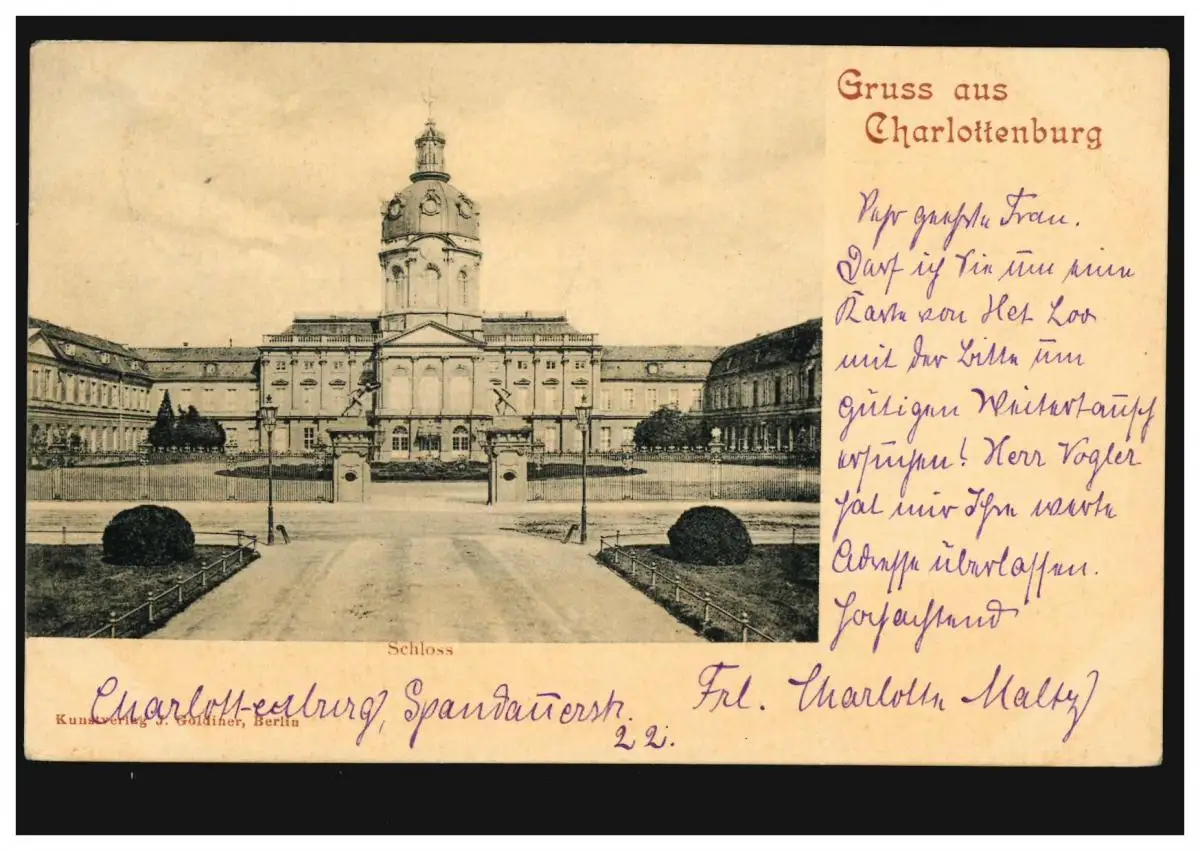 Gruss aus
Charlottenburg
Sehr geehrte Frau.
Darf ich Sie um eine
Karte von Het Loo
mit der Bitte um
gütigen Weitertausch
ersuchen! Herr Vogler
hat mir Ihre werte
Adresse überlassen.
Hochachtend
Schloss
Frl. Charlotte Maltz
Charlottenburg, Spandauerstr.
22.
Kunstverlag J. Goldiner, Berlin